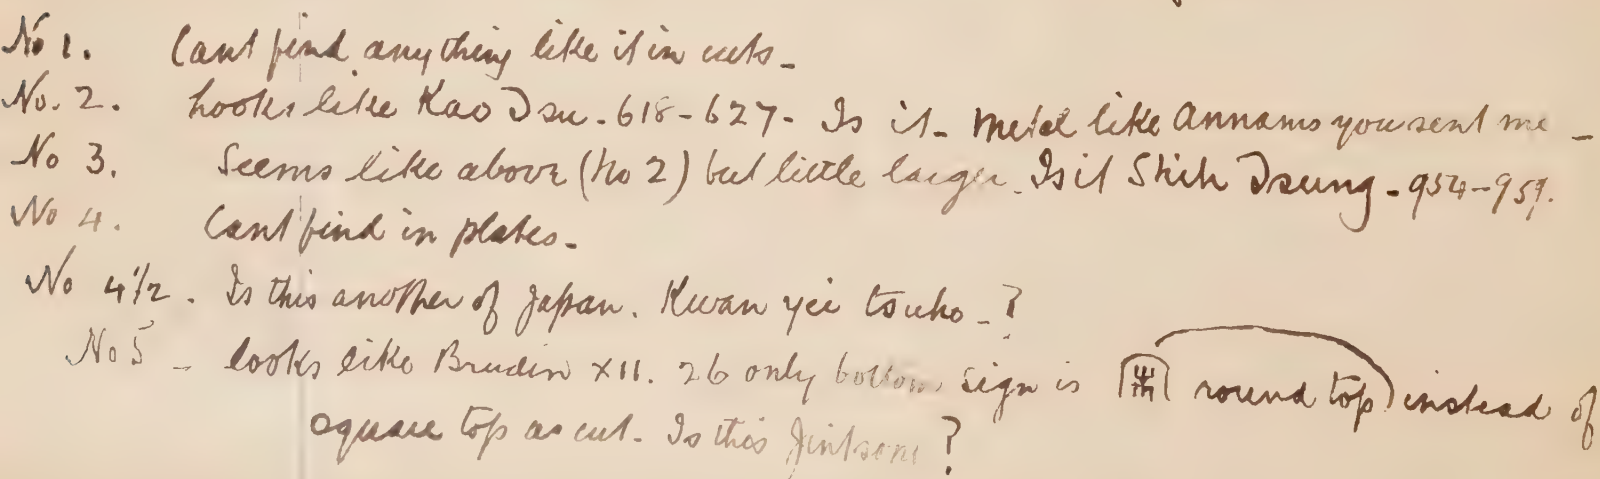 No 1. Cant find anything like it in cuts -
No. 2. Looks like Kao Dsu - 618-627 - Is it - Metal like Annams you sent me -
No 3. Seems like above (No 2) but little larger. Is it Shih Dsung - 954-959.
No 4. Cant find in plates -
No 4 1/2. Is this another of Japan. Kwan yei tsuho - ?
No 5 - looks like Brudin XII. 26 only bottom sign is round top) instead of
square top as cut - Is this ?